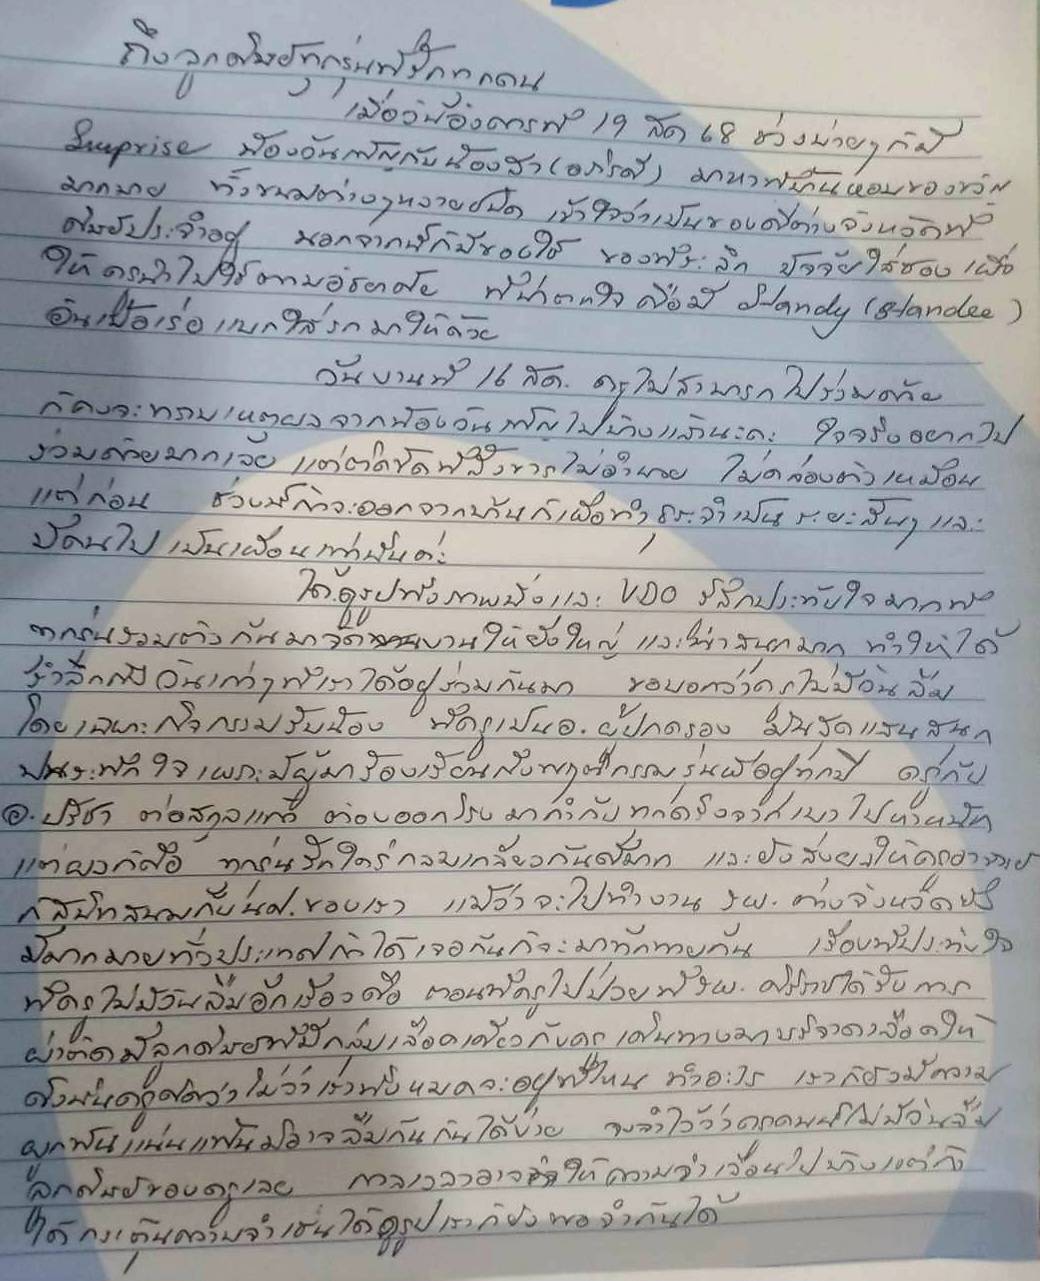 ถึงลูกศิษย์ทุกรุ่นที่รักทุกคน
เมื่อวันอังคารที่ 19 สค 68 ช่วงบ่ายๆ ก็มี
Surprise น้องวันเพ็ญกับน้องสา มาหาที่บ้านหอบของขวัญ
มากมาย ทั้งขนมต่างๆหลายชนิด เข้าใจว่าเป็นของดีต่างจังหวัดที่
ศิษย์ประจำอยู่ นอกจากนี้ก็มีของใช้ ของที่ระลึก ปัจจัยใส่ซอง เพื่อ
ให้ครูนำไปใช้ตามอัธยาศัย ที่น่าตกใจคือมี Standy (Standee)
อันเบ้อเร่อ แบกใส่รถมาให้ด้วย
วันงานที่ 16 สค. ครูไม่สามารถไปร่วมด้วย
ก็คงจะทราบเหตุผลจากน้องวันเพ็ญไปบ้างแล้วนะคะ ใจจริงอยากไป
ร่วมด้วยมากเลย แต่ติดขัดที่สังขารไม่อำนวย ไม่คล่องตัวเหมือน
แต่ก่อน ช่วงนี้ถ้าจะออกจากบ้านก็เพื่อทำธุระจำเป็น ระยะสั้นๆ และ
มีคนไปเป็นเพื่อนเท่านั้นค่ะ
ได้ดูรูปทั้งภาพนิ่งและ VDO รู้สึกประทับใจมากที่
ทุกรุ่นรวมตัวกันมาจัดงานให้ยิ่งใหญ่ และน่าสนุกมาก ทำให้ได้
รำลึกถึงวันเก่าๆที่เราได้อยู่ร่วมกันมา ขอบอกว่าครูไม่มีวันลืม
โดยเฉพาะกิจกรรมรับน้อง ที่ครูเป็นอ.ผู้ปกครอง มันรัดแสนสนุก
ปนระทึกใจ เพราะมีผู้มาร้องเรียนถึงพฤติกรรมรุ่นพี่อยู่ทุกปี ครูกับ
อ.ปรีชา ต่อสกุลแก้ว ต้องออกโรงมากำกับทุกครั้งจาก เบาไปหาหนัก
แต่ผลก็คือ ทุกรุ่นรักใคร่กลมเกลียวกันดีมาก และยังส่งผลให้ครูอาจารย์
ก็สนิทสนมกับนศ.ของเรา แม้ว่าจะไปทำงาน รพ.ต่างจังหวัดซึ่ง
มีมากมายทั่วประเทศถ้าได้เจอกันก็จะมาทักทายกัน เรื่องที่ประทับใจ
ที่ครูไม่มีวันลืมอีกเรื่องคือ ตอนที่ครูไปป่วยที่ รพ.ศิริราชได้รับการ
ผ่าตัดมีลูกศิษย์ที่มีกลุ่มเลือดเดียวกับครู เดินทางมาบริจาคเลือดให้
ดังนั้นครูคิดว่าไม่ว่าเราทั้งหมดจะอยู่ที่ไหน ทำอะไร เราก็ยังมีความ
ผูกพันแน่นแฟ้นมิอาจลืมกันกันได้ง่าย จงจำไว้ว่าครูคนนี้ไม่มีวันลืม
ลูกศิษย์ของครูเลย กาลเวลาอาจให้ความจำเลือนไปบ้างแต่ถ้า
ได้กระตุ้นความจำเช่นได้ดูรูปเราก็ยังพอจำกันได้